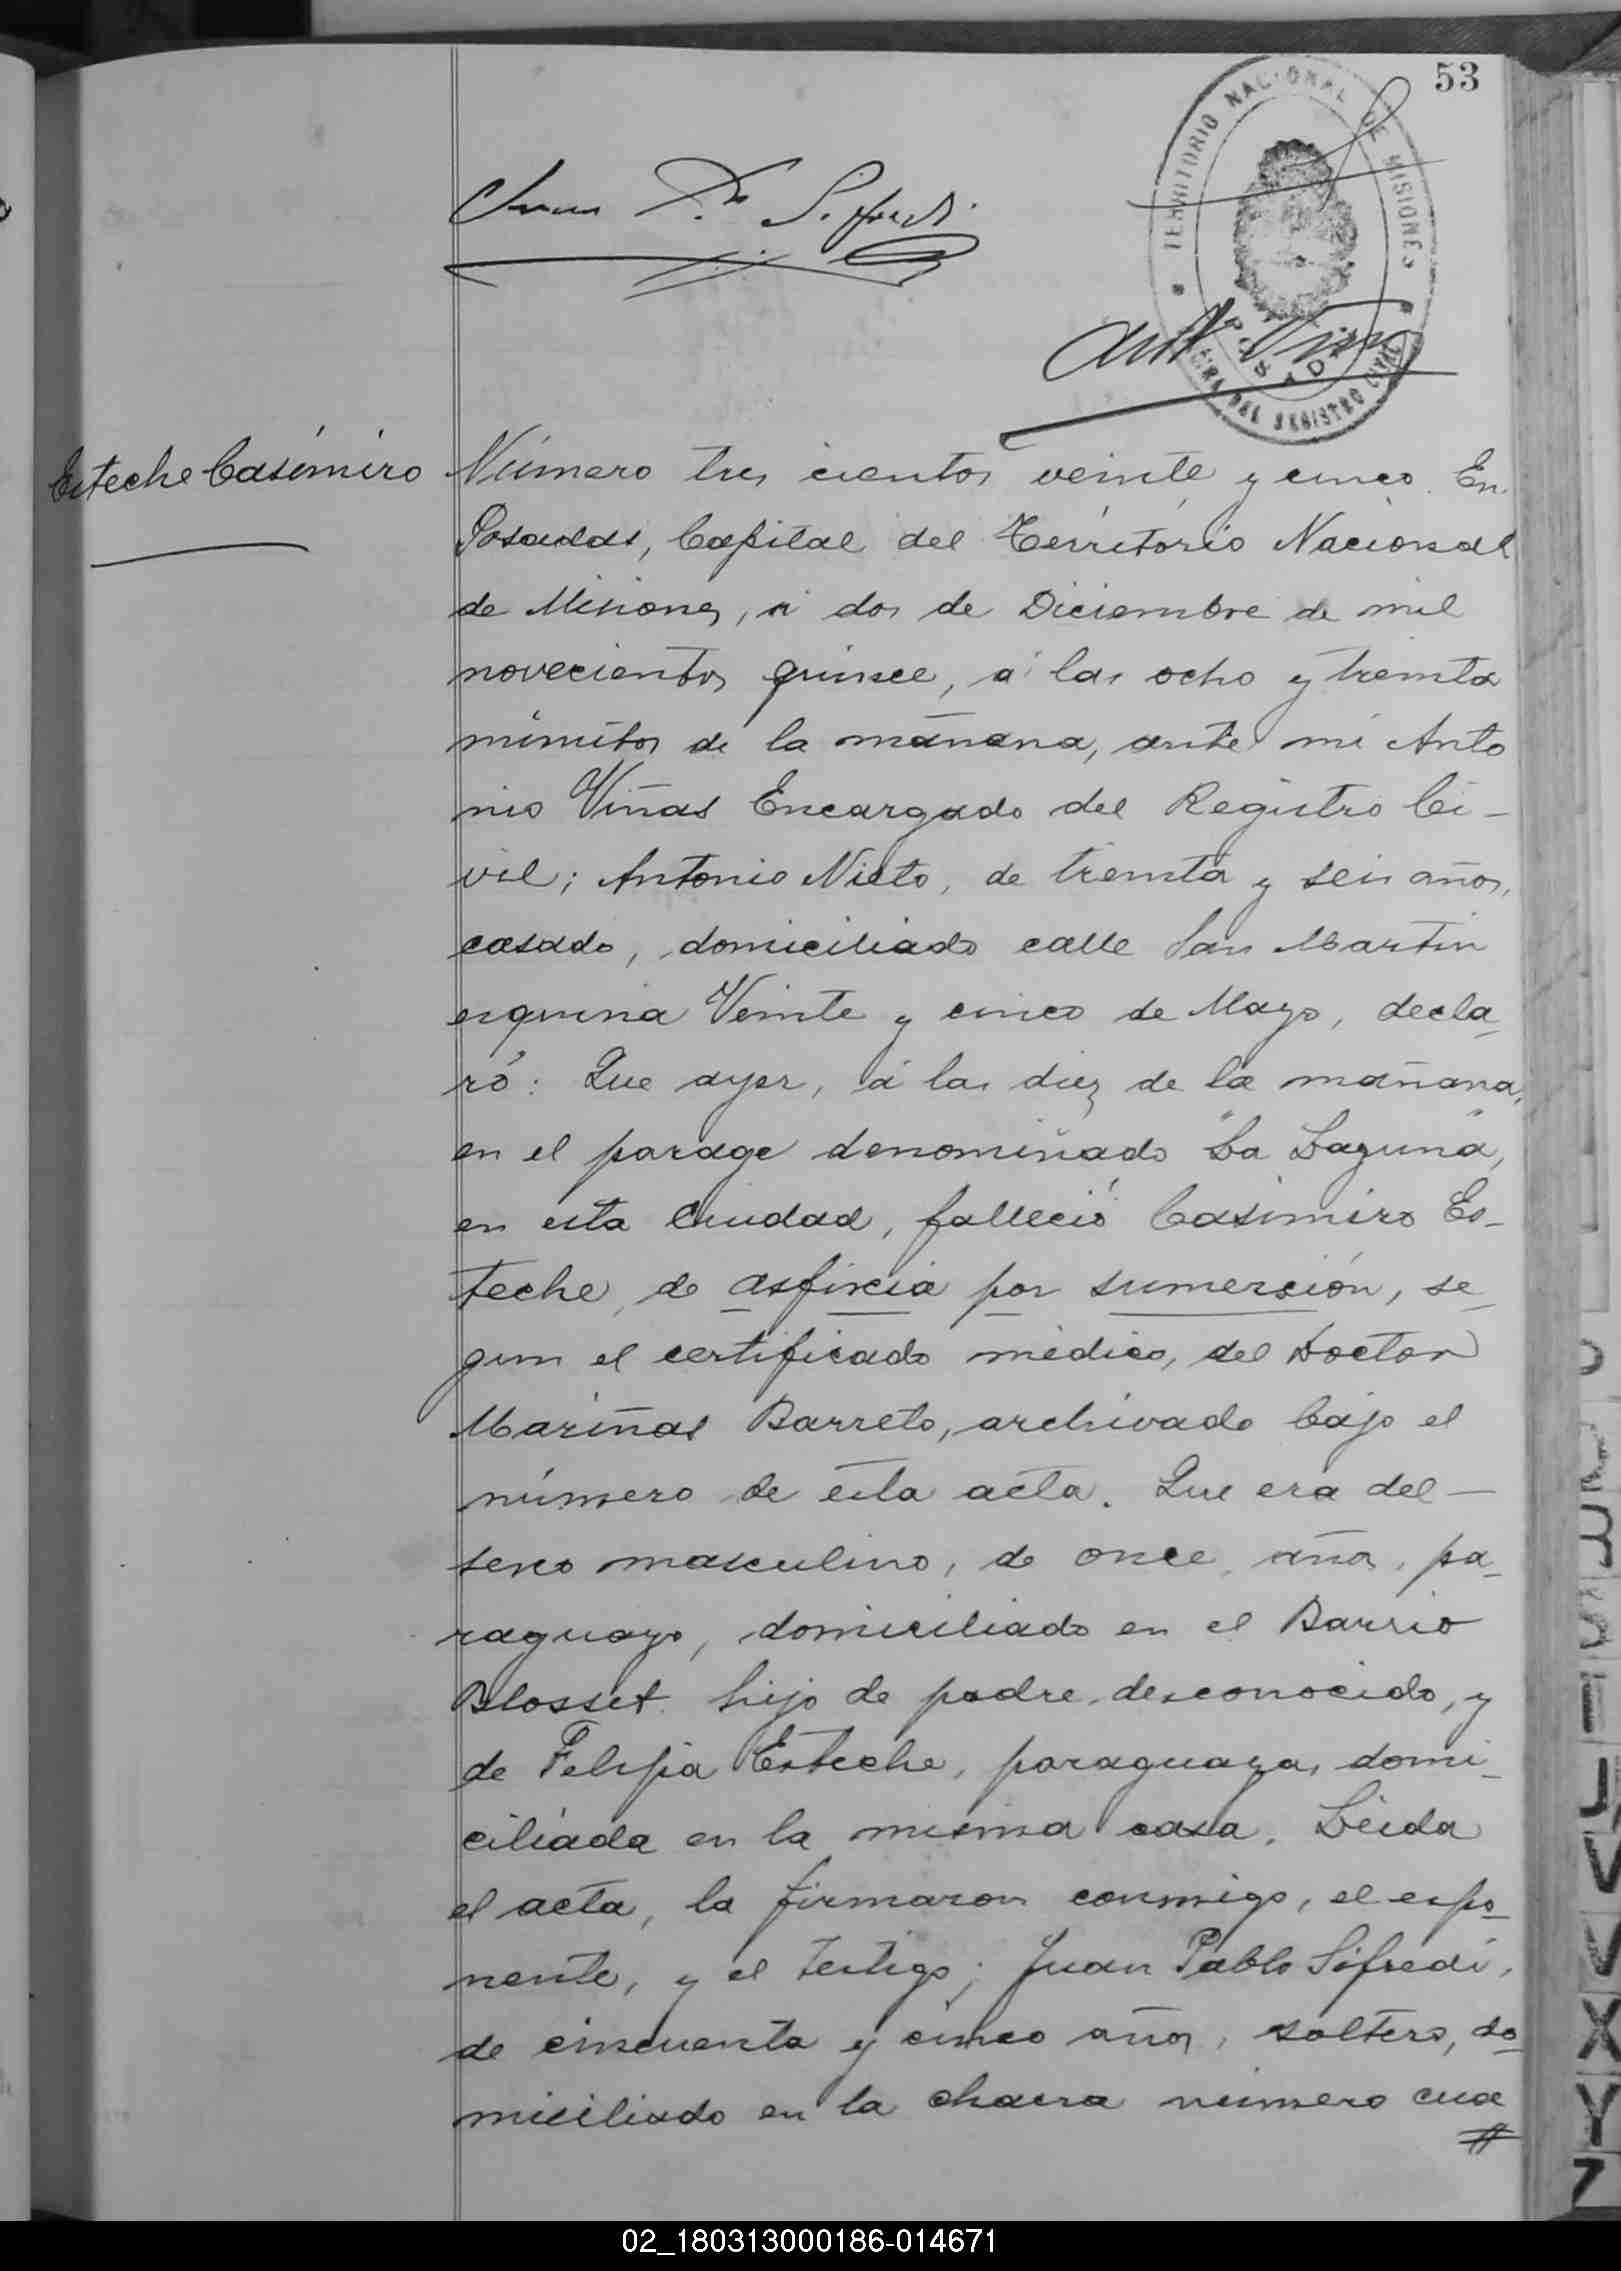 53
TERRITORIO NACIONAL DE MISIONES
POSADAS
DEL REGISTRO CIVIL
Juan P. Sifredi
Ant Viñas
Esteche Casimiro
Número tres cientos veinte y cinco. En
Posadas, Capital del Territorio Nacional
de Misiones, á dos de Diciembre de mil
novecientos quince, á las ocho y treinta
minutos de la mañana, ante mi Anto
nio Viñas Encargado del Registro Ci-
vil; Antonio Nieto, de treinta y seis años,
casado, domiciliado calle San Martin
esquina Veinte y cinco de Mayo, decla-
ró: Que ayer, á las diez de la mañana,
en el parage denominado "La Laguna",
en esta Ciudad, falleció Casimiro Es-
teche, de asfixia por sumersión, se-
gun el certificado médico, del Doctor
Mariñas Barreto, archivado bajo el
número de esta acta. Que era del —
sexo masculino, de once años, pa-
raguayo, domiciliado en el Barrio
Blosset. hijo de padre desconocido, y
de Felipa Esteche, paraguaya, domi-
ciliada en la misma casa. Leida
el acta, la firmaron conmigo, el expo-
nente, y el testigo; Juan Pablo Sifredi,
de cincuenta y cinco años, soltero, do-
miciliado en la chacra número cua
02_180313000186-014671